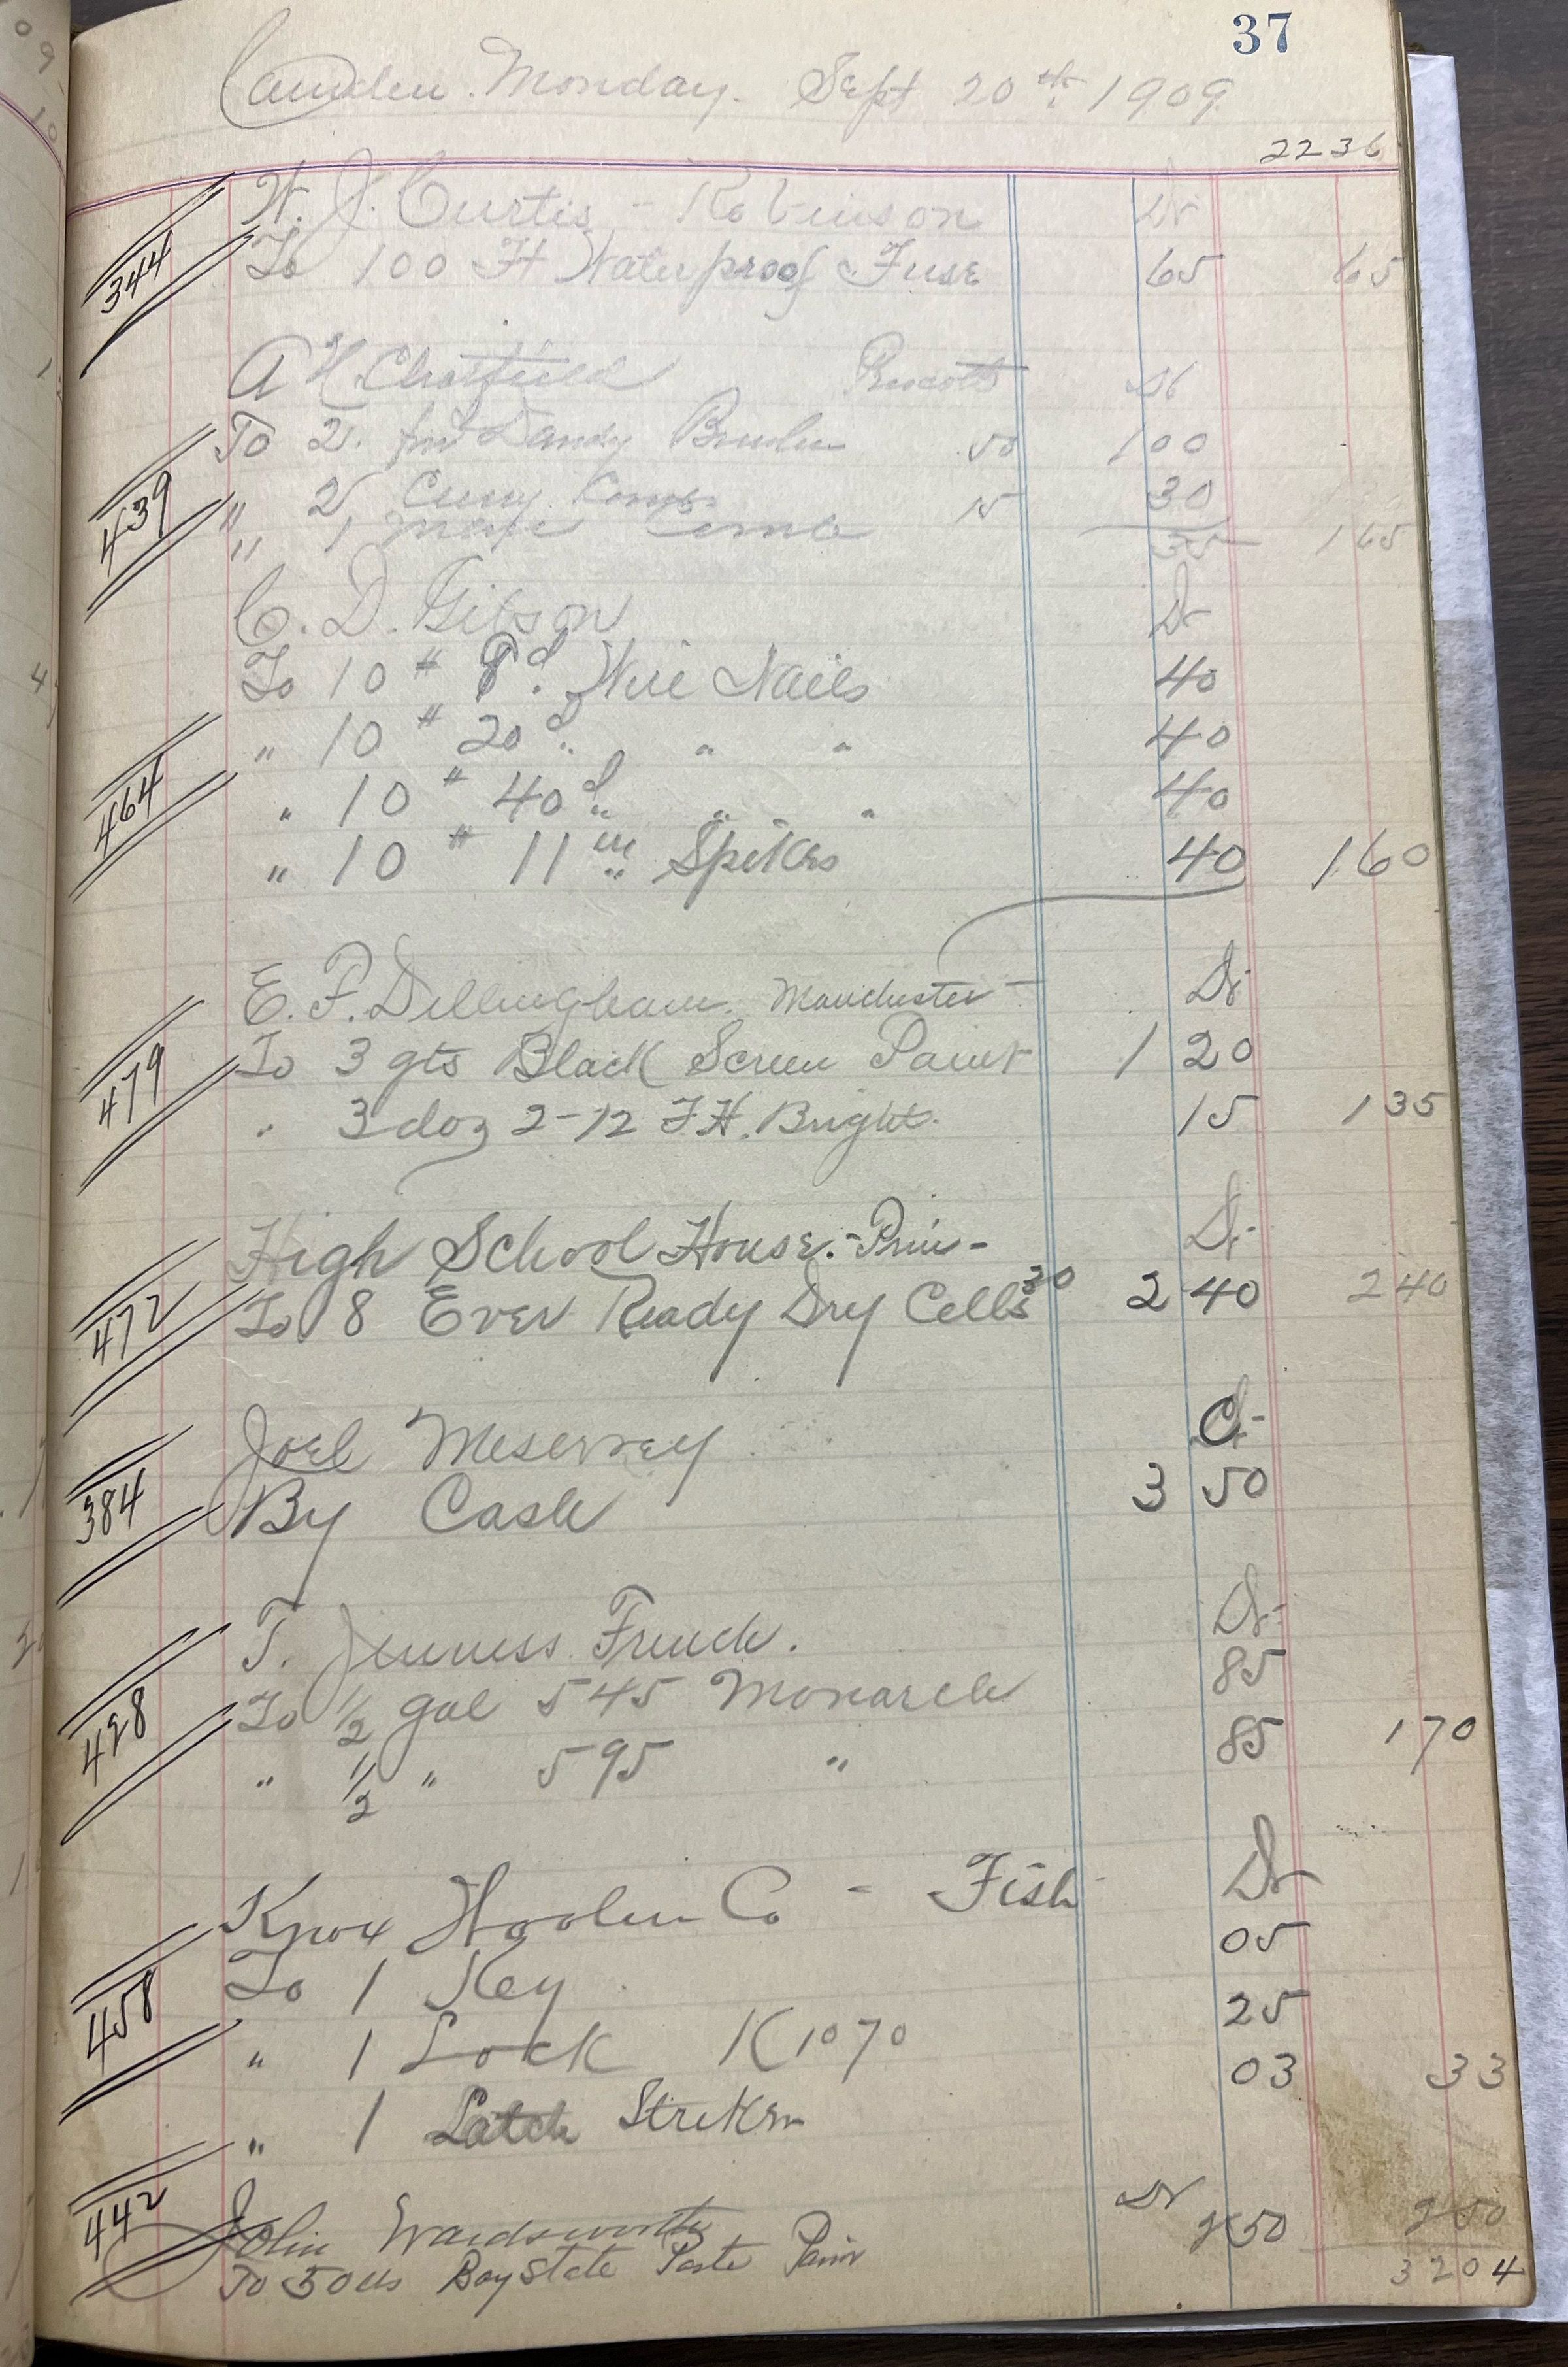 37
Camden. Monday. Sept 20th. 1909.
2236
344
W. J. Curtis - Robinson Dr
To 100 Ft Waterproof Fuse 65 65
439
A H Chatfield Prescott Dr
To 2. Dandy 50 100
" 2 Curry Combs 15 30
" 1 mane comb 35 165
464
C. D. Gibson Dr
To 10 # 8d. Wire Nails 40
" 10 # 20d. " " 40
" 10 # 40d. " " 40
" 10 # 11in Spikes 40 160
479
E. F. Dillingham. Manchester - Dr
To 3 qts Black Screen Paint 1 20
" 3 doz 2-12 F.H. Bright. 15 135
472
High School House. - Prin - Dr-
To 8 Ever Ready Dry Cells 30 2 40 2 40
384
Joel Meservey Cr-
By Cash 3 50
428
T. Jenness French. Dr-
To 1/2 gal 545 Monarch 85
" 1/2 " 595 " 85 170
458
Knox Woolen Co - Fish Dr
To 1 Key 05
" 1 Lock K1070 25
" 1 Latch Striker 03 33
442
John Wardsworth Dr
To 50 lbs Bay State Paste Pain 250 250
3204